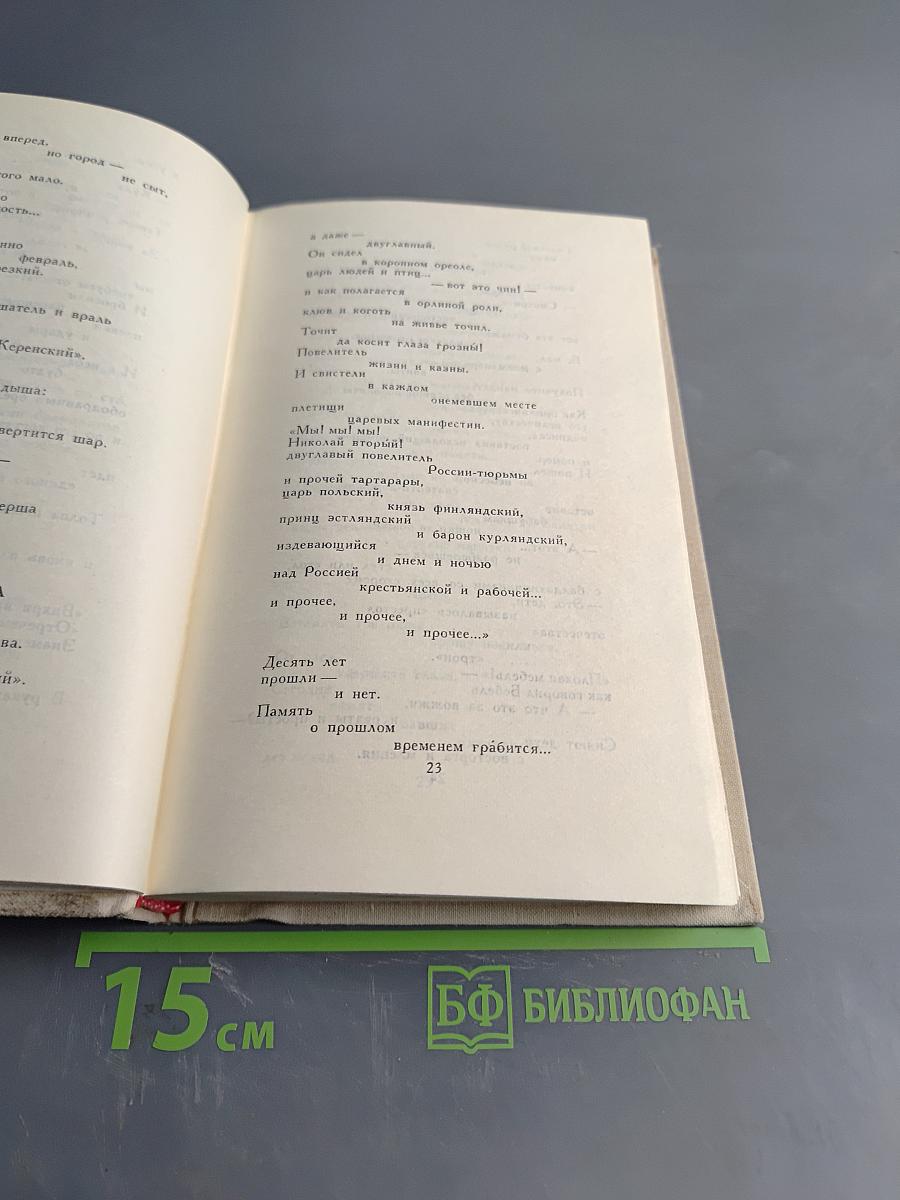 вперед,
но город —
не сыт,
ого мало.
о
ость...
нно
февраль,
езкий.
шатель и враль
Керенский».
дыша:
вертится шар.
—
ерша
А
ва.
ий».
а даже —
двуглавный.
Он сидел
в коронном ореоле,
царь людей и птиц...
— вот это чин! —
и как полагается
в орлиной роли,
клюв и коготь
на живье точил.
Точит
да косит глаза грозны́!
Повелитель
жизни и казны.
И свистели
в каждом
онемевшем месте
плетищи
царевых манифестин.
«Мы! мы! мы!
Николай вторы́й!
двуглавый повелитель
России-тюрьмы
и прочей тартарары,
царь польский,
князь финляндский,
принц эстляндский
и барон курляндский,
издевающийся
и днем и ночью
над Россией
крестьянской и рабочей...
и прочее,
и прочее,
и прочее...»
Десять лет
прошли —
и нет.
Память
о прошлом
временем гра́бится...
23
15 см
БФ БИБЛИОФАН